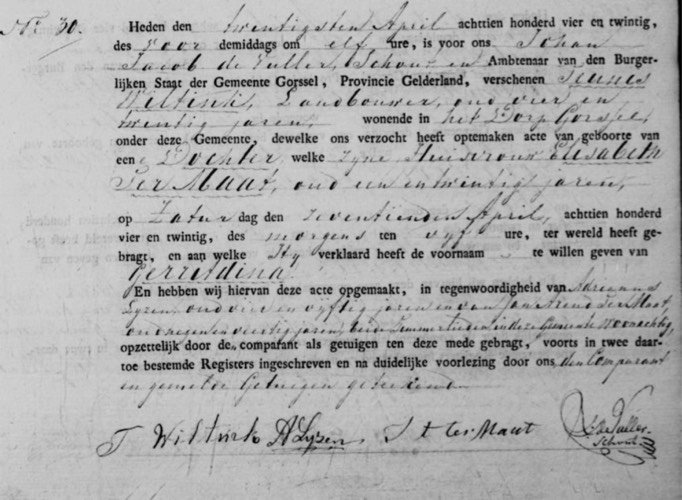 N.º 30.
Heden den twintigsten April achttien honderd vier en twintig,
des Voor demiddags om elf ure, is voor ons Johan
Jacob de Vuller, Schout en Ambtenaar van den Burger-
lijken Staat der Gemeente Gorssel, Provincie Gelderland, verschenen Teunes
Wiltink, Landbouwer, oud vier en
twintig jaren, wonende in het Dorp Gorssel,
onder deze Gemeente, dewelke ons verzocht heeft optemaken acte van geboorte van
een Dochter, welke zyne Huisvrouw Elisabeth
Ter Maat, oud een en twintig jaren,
op Zatur dag den zeventienden April, achttien honderd
vier en twintig, des morgens ten vyf ure, ter wereld heeft ge-
bragt, en aan welke Hy verklaard heeft de voornaam te willen geven van
Gerritdina
En hebben wij hiervan deze acte opgemaakt, in tegenwoordigheid van Adrianus
Lyzen, oud vier en vyftig jaren en van Jan Arend Ter Maat,
oud negen en veertig jaren, beide Timmerlieden in deze Gemeente woonachtig,
opzettelijk door de comparant als getuigen ten deze mede gebragt, voorts in twee daar-
toe bestemde Registers ingeschreven en na duidelijke voorlezing door ons, den Comparant
en gemelde Getuigen getekend
T Wiltink A Lyzen J A ter Maat de Vuller
Schout